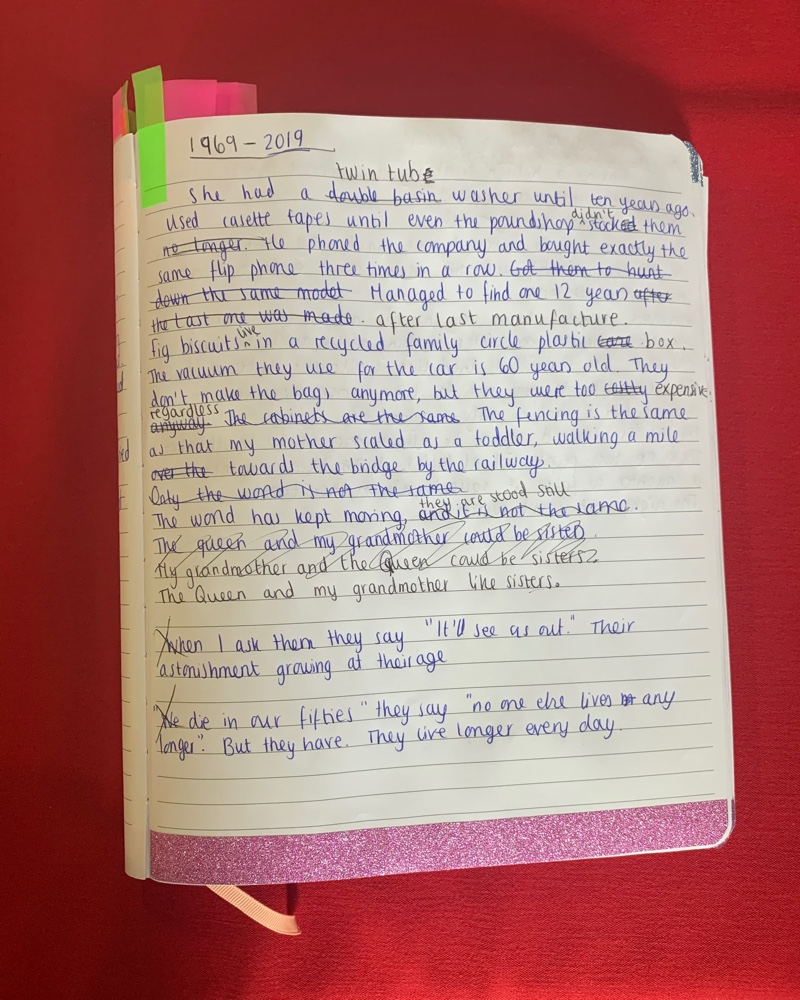 1969 – 2019
twin tub
She had a double basin washer until ten years ago.
Used casette tapes until even the poundshop didn't stocked them
no longer. He phoned the company and bought exactly the
same flip phone three times in a row. Got them to hunt
down the same model Managed to find one 12 years after
the last one was made. after last manufacture.
Fig biscuits live in a recycled family circle plastic box.
The vacuum they use for the car is 60 years old. They
don't make the bags anymore, but they were too costly expensive
regardless
anyway. The cabinets are the same The fencing is the same
as that my mother scaled as a toddler, walking a mile
over the towards the bridge by the railway.
Only the world is not the same.
they are stood still
The world has kept moving, and it is not the same.
The queen and my grandmother could be sisters
My grandmother and the Queen could be sisters.
The Queen and my grandmother like sisters.
When I ask them they say "It'll see us out." Their
astonishment growing at their age
"We die in our fifties" they say "no one else lives any
longer". But they have. They live longer every day.